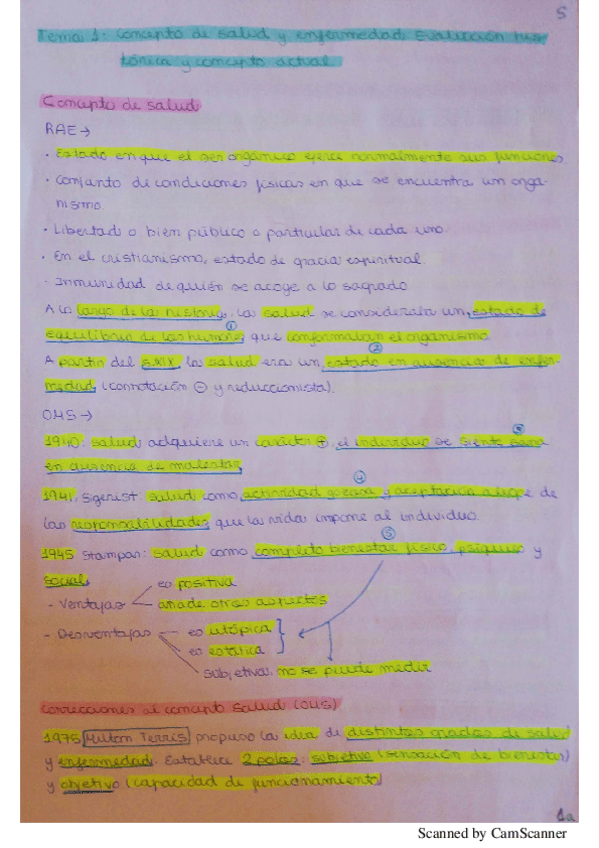 5
Tema 1: Concepto de salud y enfermedad. Evaluación his-
tórica y concepto actual
Concepto de salud
RAE→
· Estado en que el ser orgánico ejerce normalmente sus funciones.
· Conjunto de condiciones físicas en que se encuentra un orga-
nismo.
· Libertad o bien público o particular de cada uno
· En el cristianismo, estado de gracia espiritual.
· Inmunidad de quién se acoge a lo sagrado
A lo largo de la historia, la salud se consideraba un estado de
equilibrio de los humores ① que conformaban el organismo
A partir del s.XIX, la salud era un estado en ausencia de enfer- ②
medad (connotación ⊖ y reduccionista).
OMS→
1940: salud adquiere un carácter +, el individuo se siente sana ③
en ausencia de malestar
1941, Sigerist: salud como actividad gozosa y aceptación alegre de ④
las responsabilidades que la vida impone al individuo.
1945 Stampar: salud como completo bienestar físico, psíquico y ⑤
social
- Ventajas
es positiva
añade otros aspectos
- Desventajas
es utópica
es estática
subjetiva: no se puede medir
Correcciones al concepto salud (OMS)
1975 Milton Terris propuso la idea de distintos grados de salud
y enfermedad. Establece 2 polos: subjetivo (sensación de bienestar)
y objetivo (capacidad de funcionamiento)
1a
Scanned by CamScanner